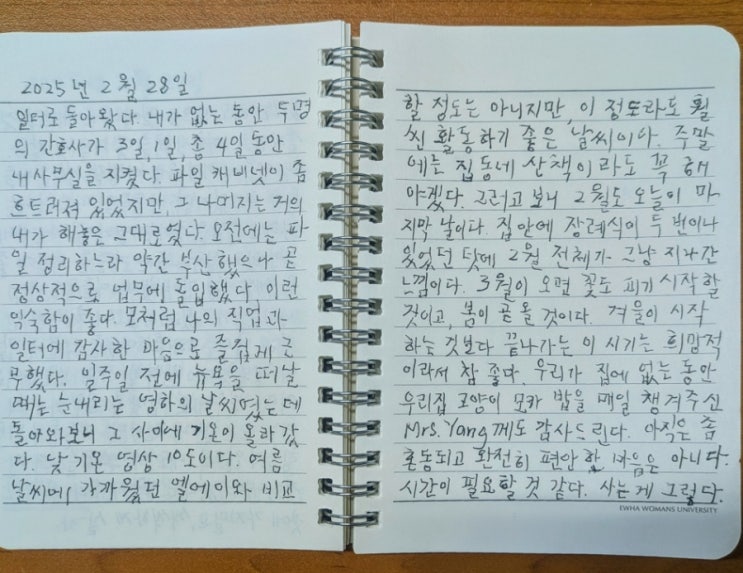 2025년 2월 28일
일터로 돌아왔다. 내가 없는 동안 두명
의 간호사가 3일, 1일, 총 4일 동안
내 사무실을 지켰다. 파일 캐비넷이 좀
흐트러져 있었지만, 그 나머지는 거의
내가 해놓은 그대로였다. 오전에는 파
일 정리하느라 약간 부산했으나 곧
정상적으로 업무에 돌입했다. 이런
익숙함이 좋다. 모처럼 나의 직업과
일터에 감사한 마음으로 즐겁게 근
무했다. 일주일 전에 뉴욕을 떠날
때는 눈내리는 영하의 날씨였는데
돌아와보니 그 사이에 기온이 올라갔
다. 낮 기온 영상 10도이다. 여름
날씨에 가까웠던 엘에이와 비교
할 정도는 아니지만, 이 정도라도 훨
씬 활동하기 좋은 날씨이다. 주말
에는 집동네 산책이라도 꼭 해
야겠다. 그러고 보니 2월도 오늘이 마
지막 날이다. 집안에 장례식이 두 번이나
있었던 탓에 2월 전체가 그냥 지나간
느낌이다. 3월이 오면 꽃도 피기 시작할
것이고, 봄이 곧 올 것이다. 겨울이 시작
하는 것보다 끝나가는 이 시기는 희망적
이라서 참 좋다. 우리가 집에 없는 동안
우리집 고양이 모카 밥을 매일 챙겨주신
Mrs. Yang께도 감사드린다. 아직은 좀
혼동되고 완전히 편안한 마음은 아니다.
시간이 필요할 것 같다. 사는게 그렇다.
EWHA WOMANS UNIVERSITY